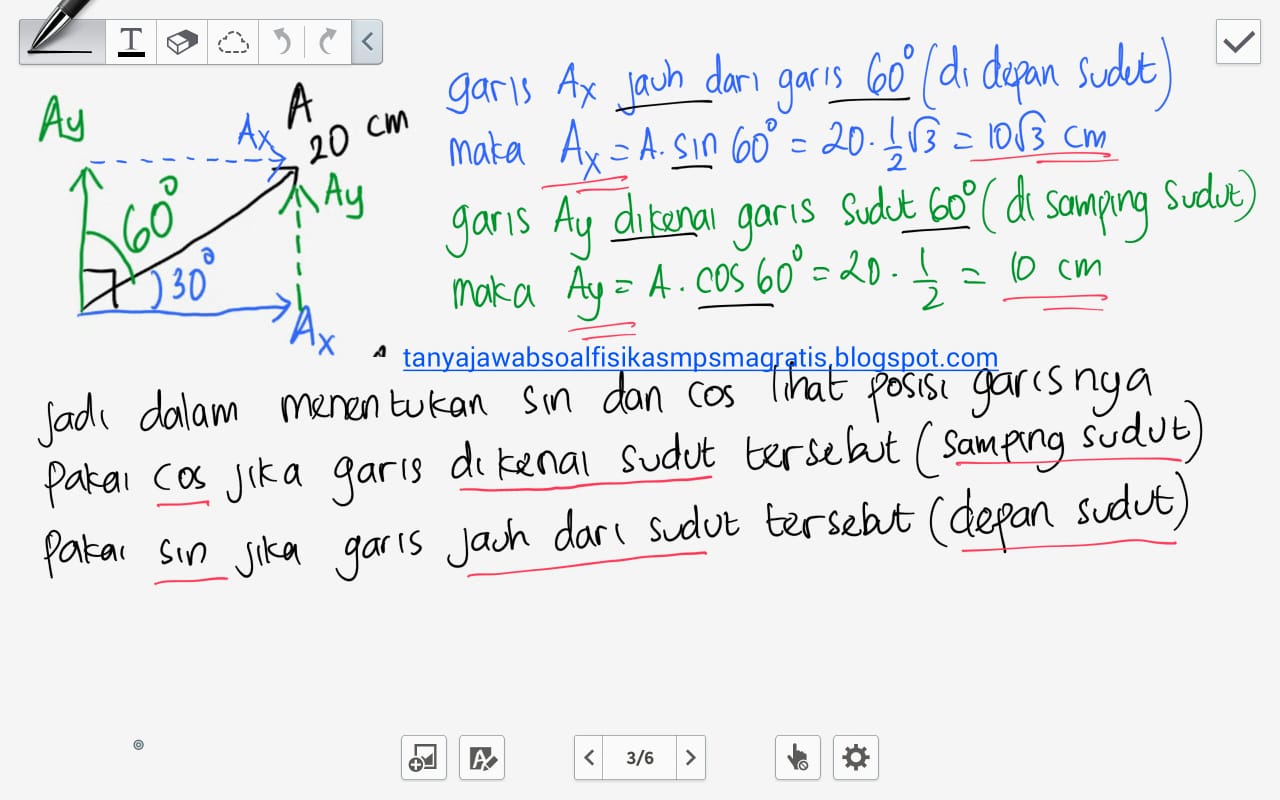 T
Ay
Ax
A
20 cm
Ay
60°
30°
Ax
garis Ax jauh dari garis 60° (di depan sudut)
maka Ax = A. sin 60° = 20 . 1/2 √3 = 10√3 cm
garis Ay dikenai garis sudut 60° (di samping sudut)
maka Ay = A . cos 60° = 20 . 1/2 = 10 cm
tanyajawabsoalfisikasmpsmagratis.blogspot.com
jadi dalam menentukan sin dan cos lihat posisi garisnya
pakai cos jika garis dikenai sudut tersebut (samping sudut)
pakai sin jika garis jauh dari sudut tersebut (depan sudut)
A
3/6